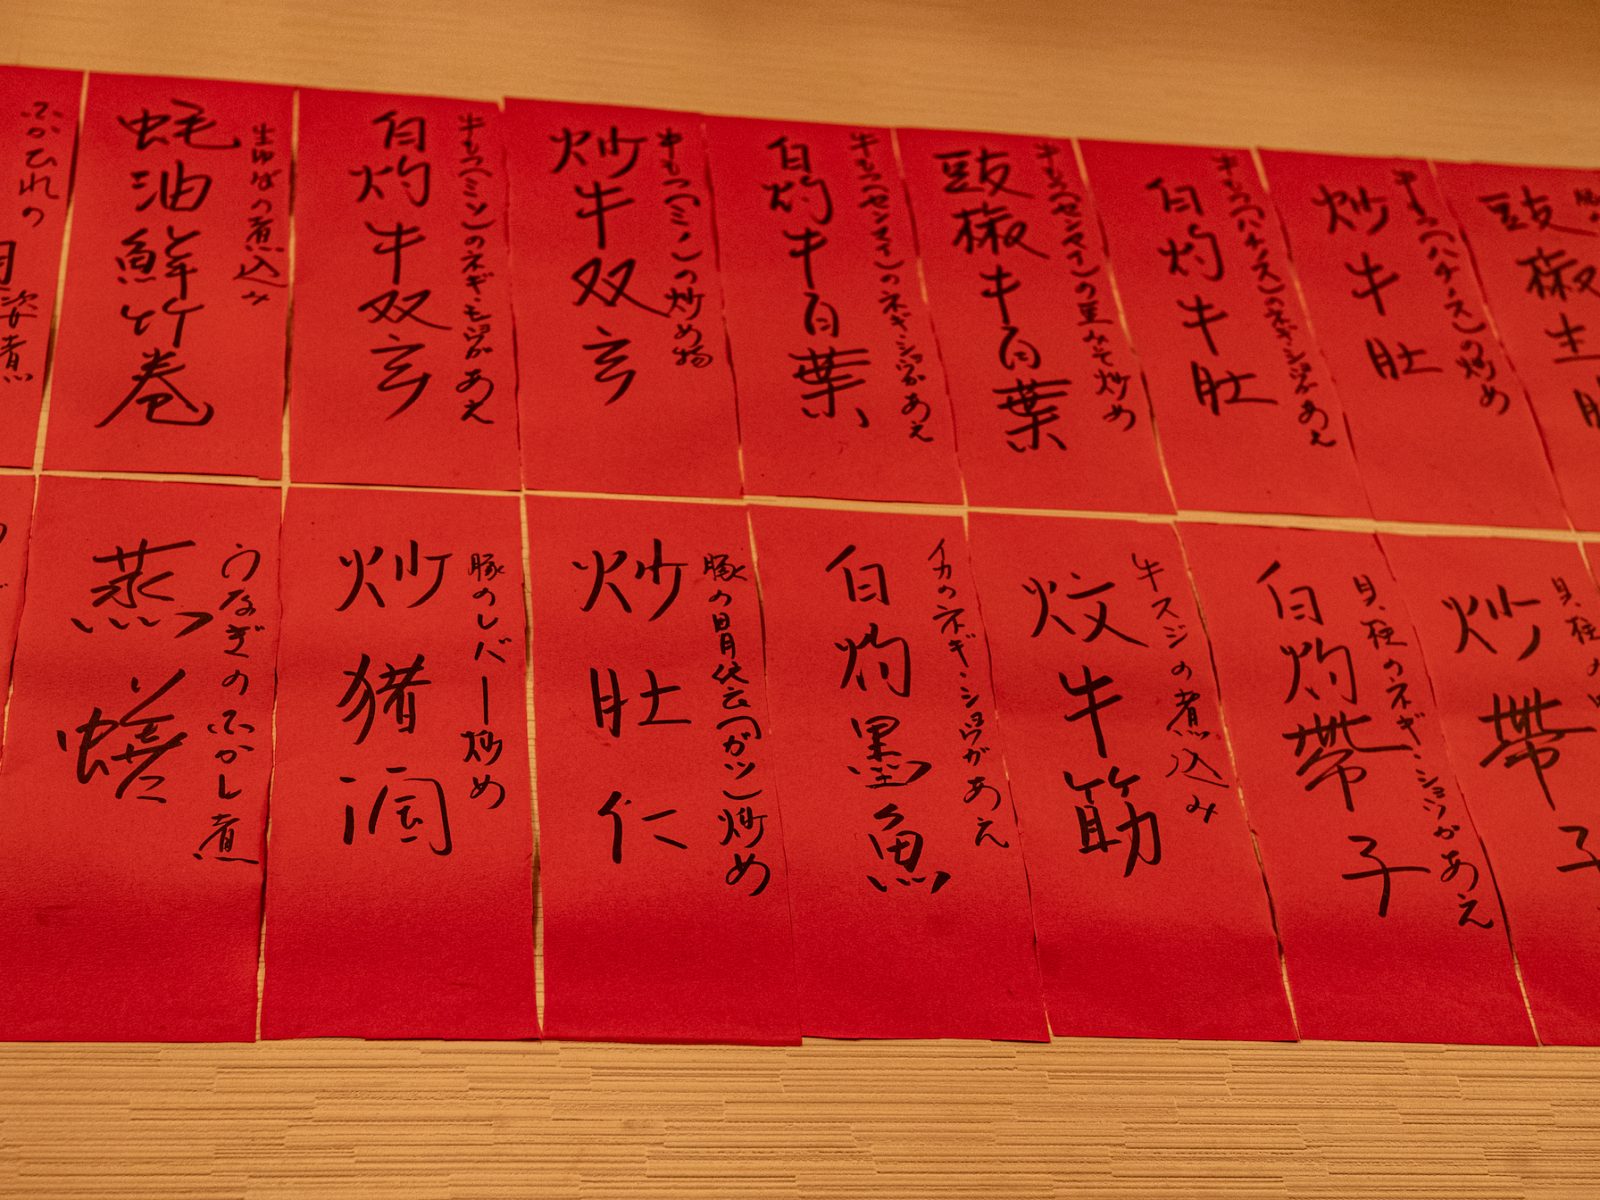 ふかひれの姿煮
蚝油鮮竹巻
生ゆばの煮込み
白灼牛双
牛もつ(ミノ)のネギ・ショウガあえ
炒牛双
牛もつ(ミノ)の炒め物
白灼牛百葉
牛もつ(センマイ)のネギ・ショウガあえ
豉椒牛百葉
牛もつ(センマイ)の黒みそ炒め
白灼牛肚
牛もつ(ハチノス)のネギ・ショウガあえ
炒牛肚
牛もつ(ハチノス)の炒め
豉椒
蒸鱔
うなぎのふかし煮
炒猪润
豚のレバー炒め
炒肚仁
豚の胃袋(ガツ)炒め
白灼墨魚
イカのネギ・ショウガあえ
炆牛筋
牛スジの煮込み
白灼帶子
貝柱のネギ・ショウガあえ
炒帶子
貝柱の